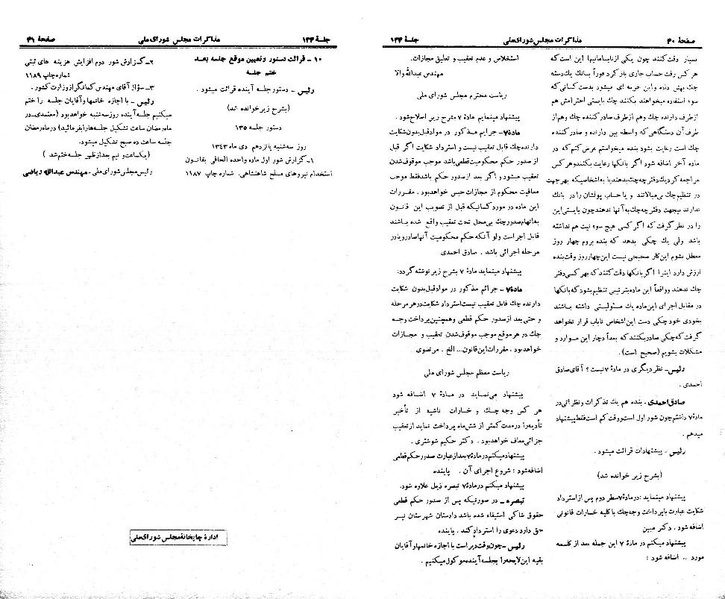 صفحهٔ ۴۰
مذاکرات مجلس شورای ملی
جلسهٔ ۱۳۴
بسیار دقت کنند چون یکی از نابسامانیها این است که
هر کس رفت حساب جاری باز کرد فوراً بانک یک دسته
چک بهش بداد و این حربه ای میشود بدست کسانی که
سوء استفاده میخواهند بکنند چک بایستی احترامش هم
از طرف دارنده چک وهم از طرف صادر کننده چک وهم از
طرف آن دستگاهی که واسطه بین دارنده و صادر کننده
چک است رعایت بشود بنده میخواستم عرض کنم که در
ماده ۷ آخر اضافه شود اگر بانکها رعایت نکنند هر کس
مراجعه کرد یک دفترچه چک بدهند یا به اشخاصیکه بهر جهت
در تنظیم چک بی‌مبالاتند و یا حساب پولشان را در بانک
ندارند میجهت دفترچه چک به آنها ندهند چون بایستی این
را در نظر گرفت که اگر کسی هیچ سوء نیت هم نداشته
باشد ولی یک چکی بدهد که بنده بروم چهار روز
معطل بشوم این کار صحیحی نیست این چهار روز وقت بنده
ارزش دارد اینرا اگر بانکها دقت کنند که بهر کسی دفتر
چک ندهند و واقعاً این ماده بنظر رئیس تنظیم بشود که بانکها
در مقابل اجرای این ماده یک مسئولیتی داشته باشند
بخودی خود چکی دست این اشخاص ناباب قرار نخواهد
گرفت که چکی صادر بکنند که بعداً دچار این موارد و
مشکلات بشویم (صحیح است).
رئیس - نظر دیگری در مادهٔ ۷ نیست؟ آقای صادق
احمدی.
صادق احمدی - بنده هم یک تذکرات و نظراتی در
مادهٔ ۷ داشتم چون شور اول است و وقت کم است فقط پیشنهاد
میدهم.
رئیس - پیشنهادات قرائت میشود.
(بشرح زیر خوانده شد)
پیشنهاد مینماید: در مادهٔ ۷ سطر دوم پس از استرداد
شکایت عبارت یا پرداخت وجه چک با کلیه خسارات قانونی
اضافه شود. دکتر مبین
پیشنهاد میکنم در مادهٔ ۷ این جمله بعد از کلمه
مورد .. اضافه شود:
استخلاص و عدم تعقیب و تعلیق مجازات.
مهندس عبدالله والا
ریاست محترم مجلس شورای ملی
پیشنهاد مینمایم مادهٔ ۷ بشرح زیر اصلاح شود.
مادهٔ ۷ - جرایم مذکور در مواد قبل بدون شکایت
دارنده چک قابل تعقیب نیست و استرداد شکایت اگر قبل
از صدور حکم محکومیت قطعی باشد موجب موقوف شدن
تعقیب میشود و اگر بعد از صدور حکم باشد فقط موجب
معافیت محکوم از مجازات حبس خواهد بود. مقررات
این ماده در مورد کسانیکه قبل از تصویب این قانون
به اتهام صدور چک بی‌محل تحت تعقیب واقع شده باشند
قابل اجراست ولو آنکه حکم محکومیت آنها صادر و بدر
مرحله اجرائی باشد. صادق احمدی
پیشنهاد مینماید مادهٔ ۷ بشرح زیر نوشته گردد:
مادهٔ ۷ - جرائم مذکور در مواد قبل بدون شکایت
دارنده چک قابل تعقیب نیست و استرداد شکایت در هر مرحله
و حتی بعد از صدور حکم قطعی و همچنین پرداخت وجه
چک در هر موقع موجب موقوف شدن تعقیب و مجازات
خواهد بود. مقررات این قانون... الخ. مرتضوی
ریاست معظم مجلس شورای ملی
پیشنهاد می‌نماید در مادهٔ ۷ اضافه شود
هر کس وجه چک و خسارات ناشیه از تأخیر
تأدیه را در مدت کمتر از شش ماه پرداخت نماید از تعقیب
جزائی معاف خواهد بود. دکتر حکیم شوشتری.
پیشنهاد میکنم در مادهٔ ۷ بعد از عبارت صدور حکم قطعی
اضافه شود: شروع اجرای آن. پاینده
پیشنهاد میکنم در مادهٔ ۷ تبصره ذیل علاوه شود.
تبصره - در صورتیکه پس از صدور حکم قطعی
حقوق شاکی استیفاء شده باشد دادستان شهرستان نیز
حق دارد دعوی را استرداد کند. پاینده
رئیس - چون وقت دیر است با اجازه خانمها و آقایان
بقیه این لایحه را بجلسه آینده موکول میکنیم.
جلسهٔ ۱۳۴
مذاکرات مجلس شورای ملی
صفحهٔ ۴۱
۱۰ - قرائت دستور و تعیین موقع جلسه بعد -
ختم جلسه
رئیس - دستور جلسه آینده قرائت میشود.
(بشرح زیر خوانده شد)
دستور جلسه ۱۳۵
روز سه‌شنبه پانزدهم دی ماه ۱۳۴۳
۱- گزارش شور اول ماده واحده الحاقی بقانون
استخدام نیروهای مسلح شاهنشاهی. شماره چاپ ۱۱۸۷
۲- گزارش شور دوم افزایش هزینه های ثبتی
شماره چاپ ۱۱۸۹
۳- سؤال آقای مهندس کمانگر از وزارت کشور.
رئیس - با اجازه خانمها و آقایان جلسه را ختم
میکنیم جلسه آینده روز سه شنبه خواهد بود (معتمدی - در
ماه رمضان ساعت تشکیل جلسه ها را بفرمائید) در ماه رمضان
جلسه ساعت ده صبح تشکیل میشود.
(یکساعت و نیم بعد از ظهر جلسه ختم شد)
رئیس مجلس شورای ملی - مهندس عبدالله ریاضی
ادارهٔ چاپخانهٔ مجلس شورای ملی